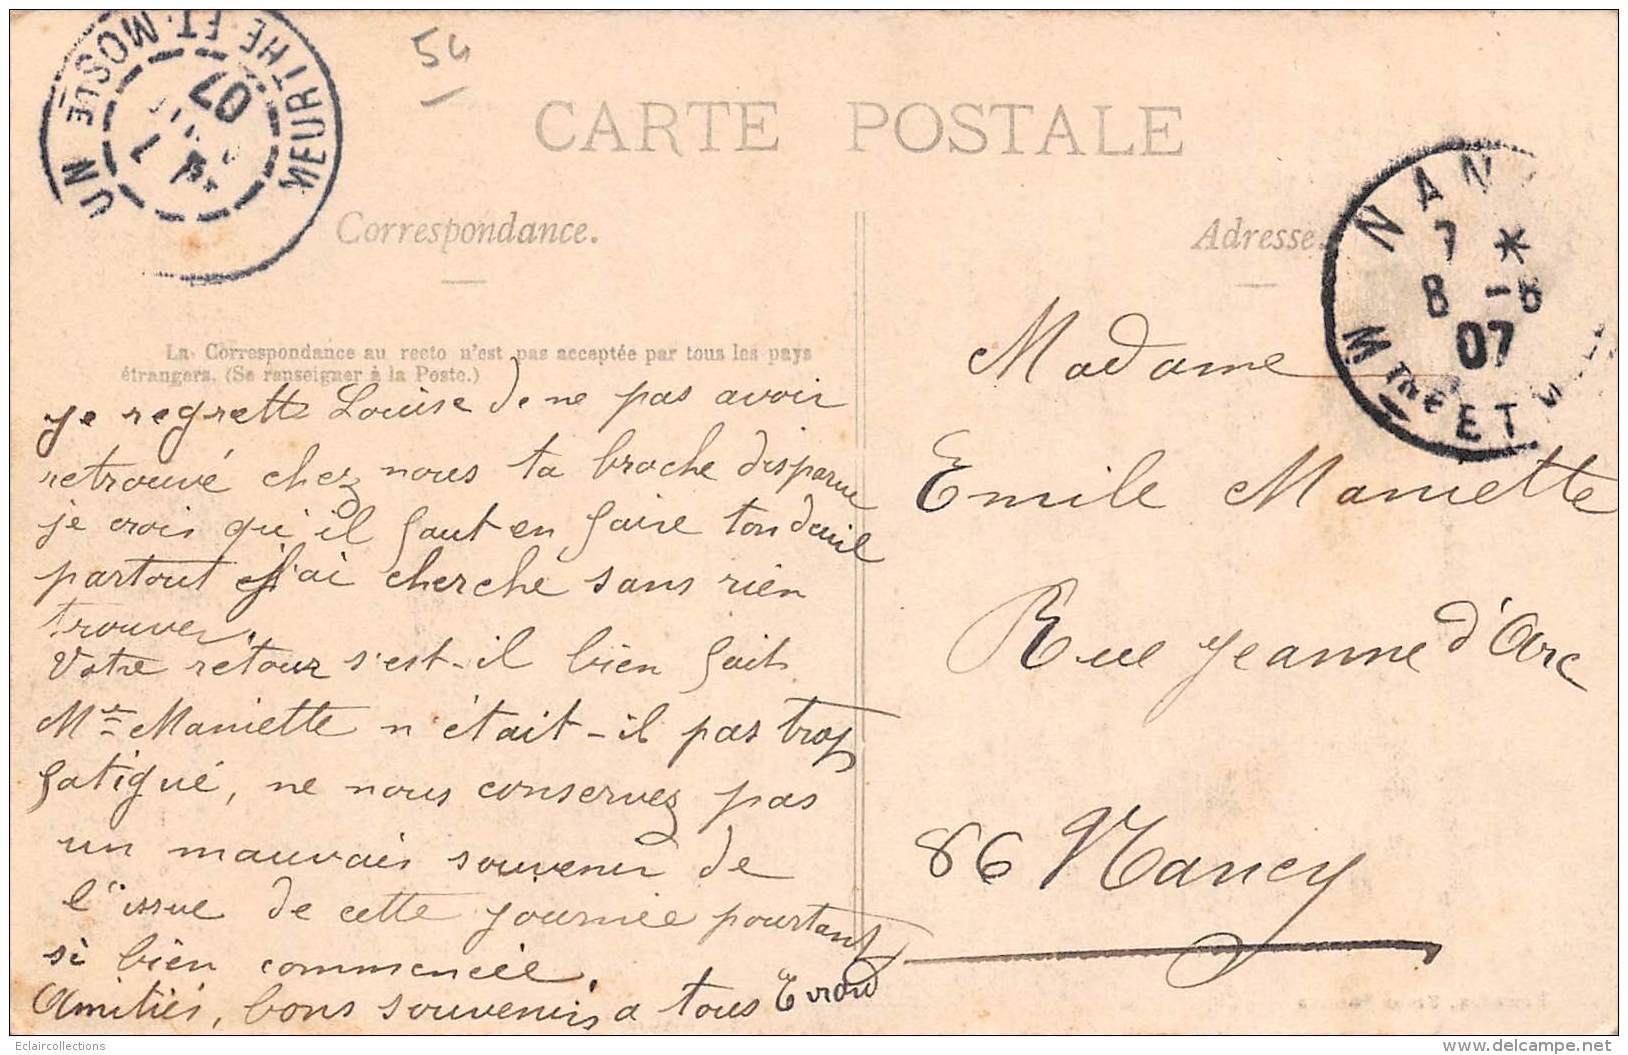 54
UN
MEURTHE-ET-MOSELLE
07
CARTE POSTALE
Correspondance.
Adresse.
NAN
7 *
8 -8
07
M THE ET M
La Correspondance au recto n'est pas acceptée par tous les pays
étrangers. (Se renseigner à la Poste.)
je regrette Louise de ne pas avoir
retrouvé chez nous ta broche disparue
je crois qu'il faut en faire ton deuil
partout j'ai cherché sans rien
trouver.
Votre retour s'est-il bien fait
Mr Maniette n'était-il pas trop
fatigué, ne nous conservez pas
un mauvais souvenir de
l'issue de cette journée pourtant
si bien commencée.
Amitiés, bons souvenirs a tous
Madame
Emile Maniette
Rue Jeanne d'Arc
86 Nancy
Eclaircollections
www.delcampe.net